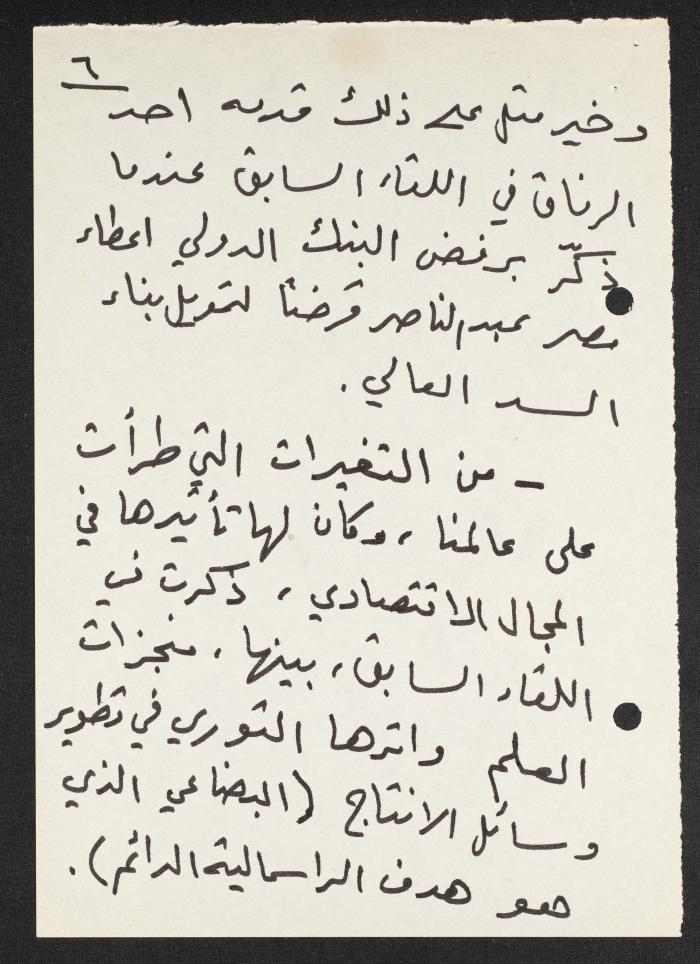 ٦
وخير مثل على ذلك قدمه احد
الرفاق في اللقاء السابق عندما
ذكّر برفض البنك الدولي اعطاء
مصر عبدالناصر قرضاً لتمويل بناء
السد العالي .
– من التغيرات التي طرأت
على عالمنا ، وكان لها تأثيرها في
المجال الاقتصادي ، ذكرت في
اللقاء السابق ، بينها ، منجزات
العلم واثرها الثوري في تطوير
وسائل الانتاج (البضاعي الذي
هو هدف الراسمالية الدائم) .